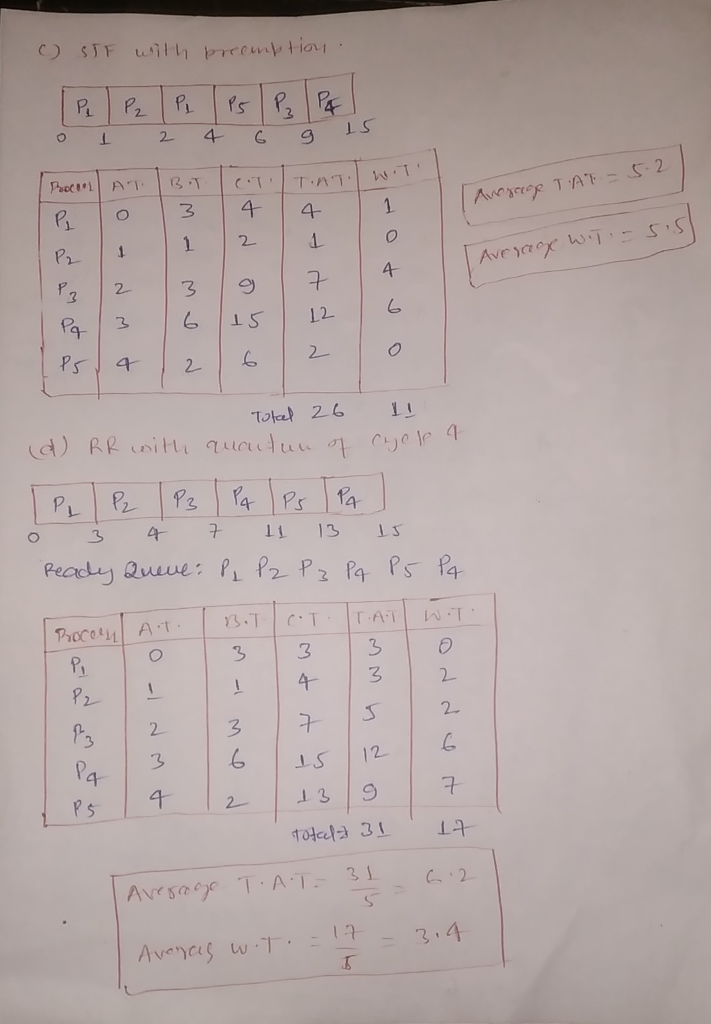 c) SJF with preemption.
P1 P2 P1 P5 P3 P4
0 1 2 4 6 9 15
Process A.T. B.T C.T. T.A.T. W.T.
P1 0 3 4 4 1
P2 1 1 2 1 0
P3 2 3 9 7 4
P4 3 6 15 12 6
P5 4 2 6 2 0
Total 26 11
Average T.A.T = 5.2
Average W.T. = 5.5
(d) RR with quantum of cycle 4
P1 P2 P3 P4 P5 P4
0 3 4 7 11 13 15
Ready Queue: P1 P2 P3 P4 P5 P4
Process A.T. B.T C.T. T.A.T W.T.
P1 0 3 3 3 0
P2 1 1 4 3 2
P3 2 3 7 5 2
P4 3 6 15 12 6
P5 4 2 13 9 7
Total → 31 17
Average T.A.T = 31/5 = 6.2
Average W.T. = 17/5 = 3.4